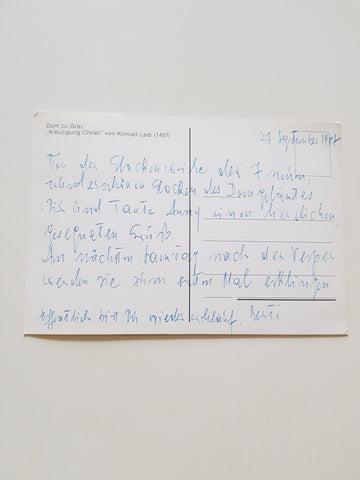 Dom zu Graz
„Kreuzigung Christi" von Konrad Laib (1457)
27. September 1987
Von der Glockenweihe der 7 neuen,
wunderschönen Glocken des Domgeläutes
Dir und Tante einen herzlichen,
gesegneten Gruß.
Am nächsten Samstag nach der Vesper
werden sie zum ersten Mal erklingen.
Hoffentlich bist Du wieder wohlauf. Berti